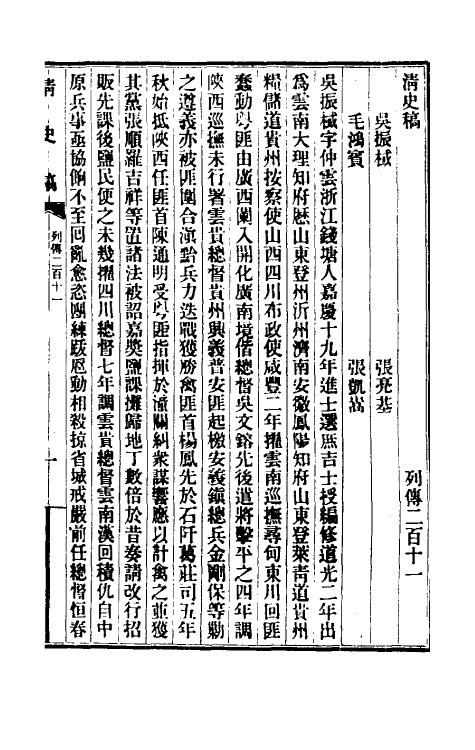 清史稿
列傳二百十一
吳振棫　張亮基
毛鴻賓　張凱嵩
吳振棫字仲雲浙江錢塘人嘉慶十九年進士選庶吉士授編修道光二年出
爲雲南大理知府歷山東登州沂州濟南安徽鳳陽知府山東登萊靑道貴州
糧儲道貴州按察使山西四川布政使咸豐二年擢雲南巡撫尋甸東川回匪
蠢動粵匪由廣西闌入開化廣南境偕總督吳文鎔先後遣將擊平之四年調
陝西巡撫未行署雲貴總督貴州興義普安匪起檄安義鎭總兵金剛保等勦
之遵義亦被匪圍合滇黔兵力迭戰獲勝禽匪首楊鳳先於石阡葛莊司五年
秋始抵陝西任匪首陳通明受粵匪指揮於潼關糾衆謀響應以計禽之並獲
其黨張順羅吉祥等寘諸法被詔嘉獎鹽課攤歸地丁數倍於昔奏請改行招
販先課後鹽民便之未幾擢四川總督七年調雲貴總督雲南漢回積仇自中
原兵事亟協餉不至回亂愈恣團練跋扈動相殺掠省城戒嚴前任總督恒春
清史稿
列傳二百十一
一